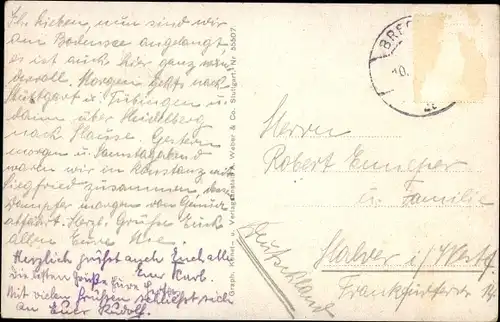 Ihr Lieben, nun sind wir
am Bodensee angelangt
es ist auch hier ganz
dervoll. Morgen geht's nach
Stuttgart u. Tübingen u.
dann über Heidelberg
nach Hause. Gestern
morgen u. Samstagabend
waren wir in Konstanz mit
Siegfried zusammen, der
Dampfer morgen von
abfährt. Herzl. Grüße Euch
allen Eure
Herzlich grüßt auch Euch alle
Euer Karl.
Die besten Grüße Eure
Mit vielen Grüßen schließt sich
an Euer Rudolf.
Graph. Kunst- u. Verlagsanstalt A. Weber & Co. Stuttgart. Nr. 55507
BREG
10.
Herrn
Robert
u. Familie
Halver i/Westf.
Frankfurterstr.
Deutschland